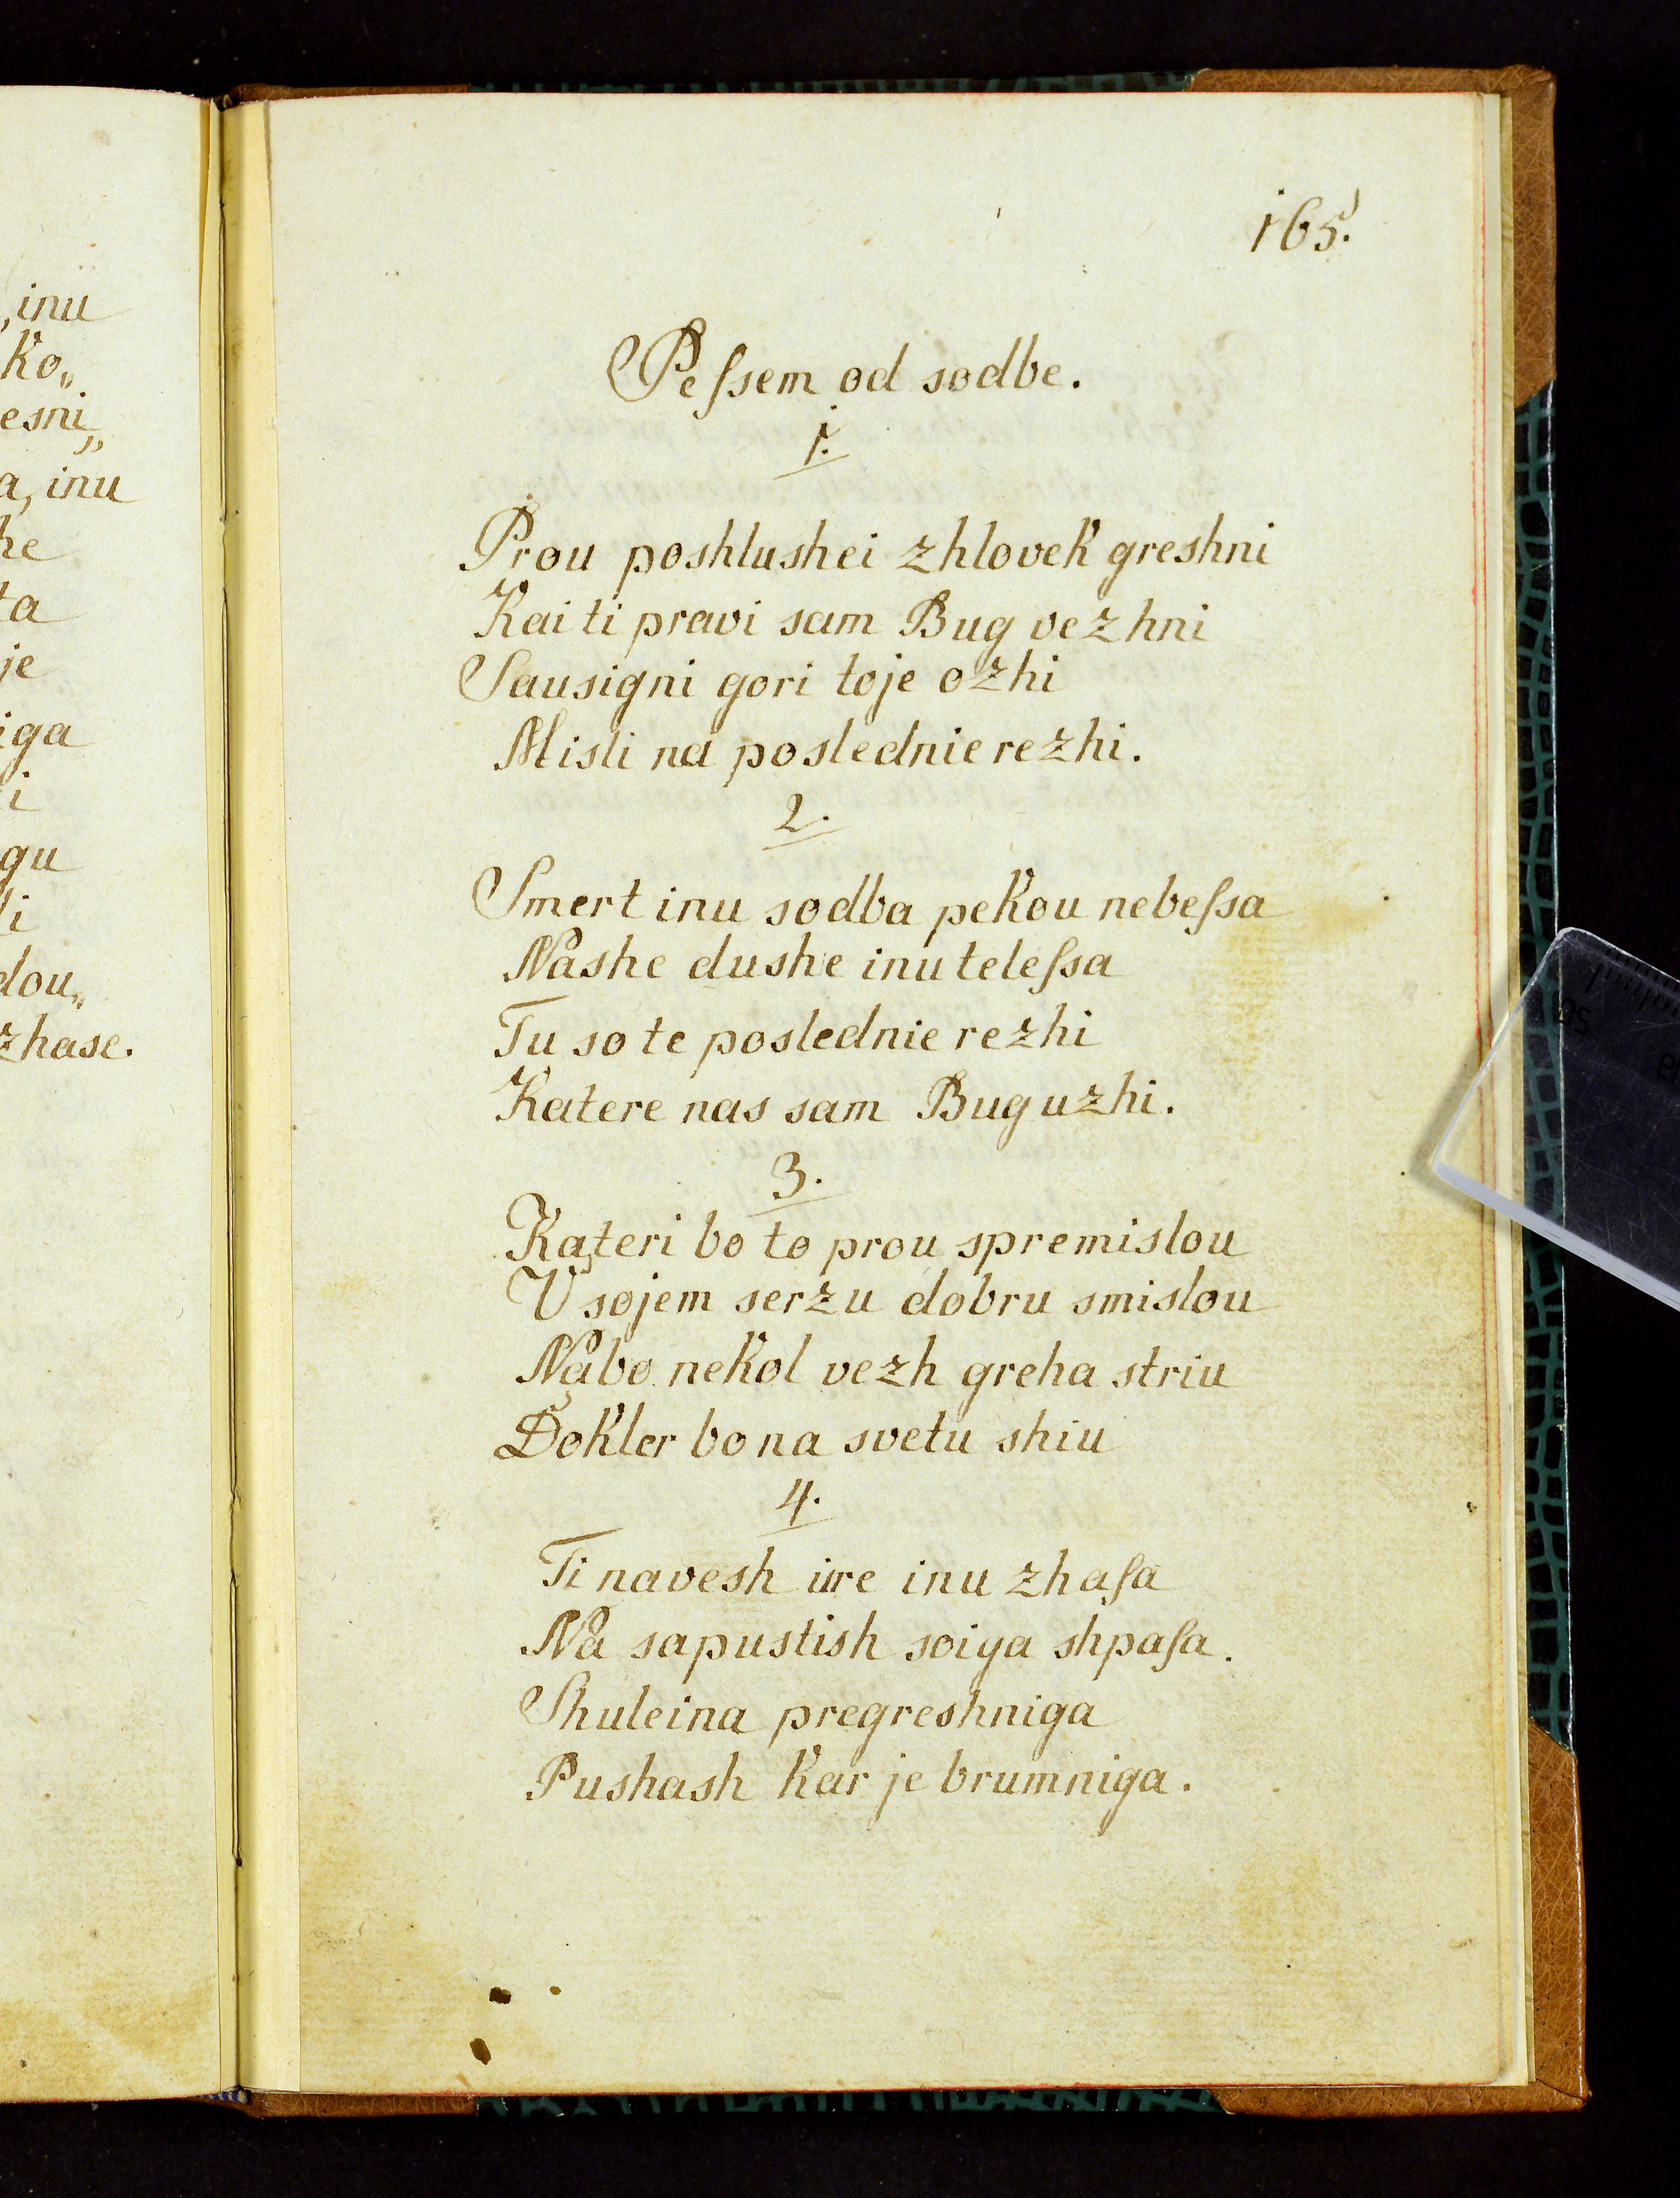 ,inu
Ko„
esni„
a, inu
he
ta
je
iga
i
gu
li
dou„
zhase.
165.
Peſsem od sodbe.
1.
Prou poshlushei zhlovek greshni
Kai ti pravi sam Bug vezhni
Sausigni gori toje ozhi
Misli na poslednie rezhi.
2.
Smert inu sodba pekou nebeſsa
Nashe dushe inu teleſsa
Tu so te poslednie rezhi
Katere nas sam Bug uzhi.
3.
Kateri bo to prou spremislou
V sojem serzu dobru smislou
Nabo nekol vezh greha striu
Dokler bo na svetu shiu
4.
Ti navesh ure inu zhaſa
Na sapustish soiga shpaſa.
Shuleina pregreshniga
Pushash kar je brumniga.